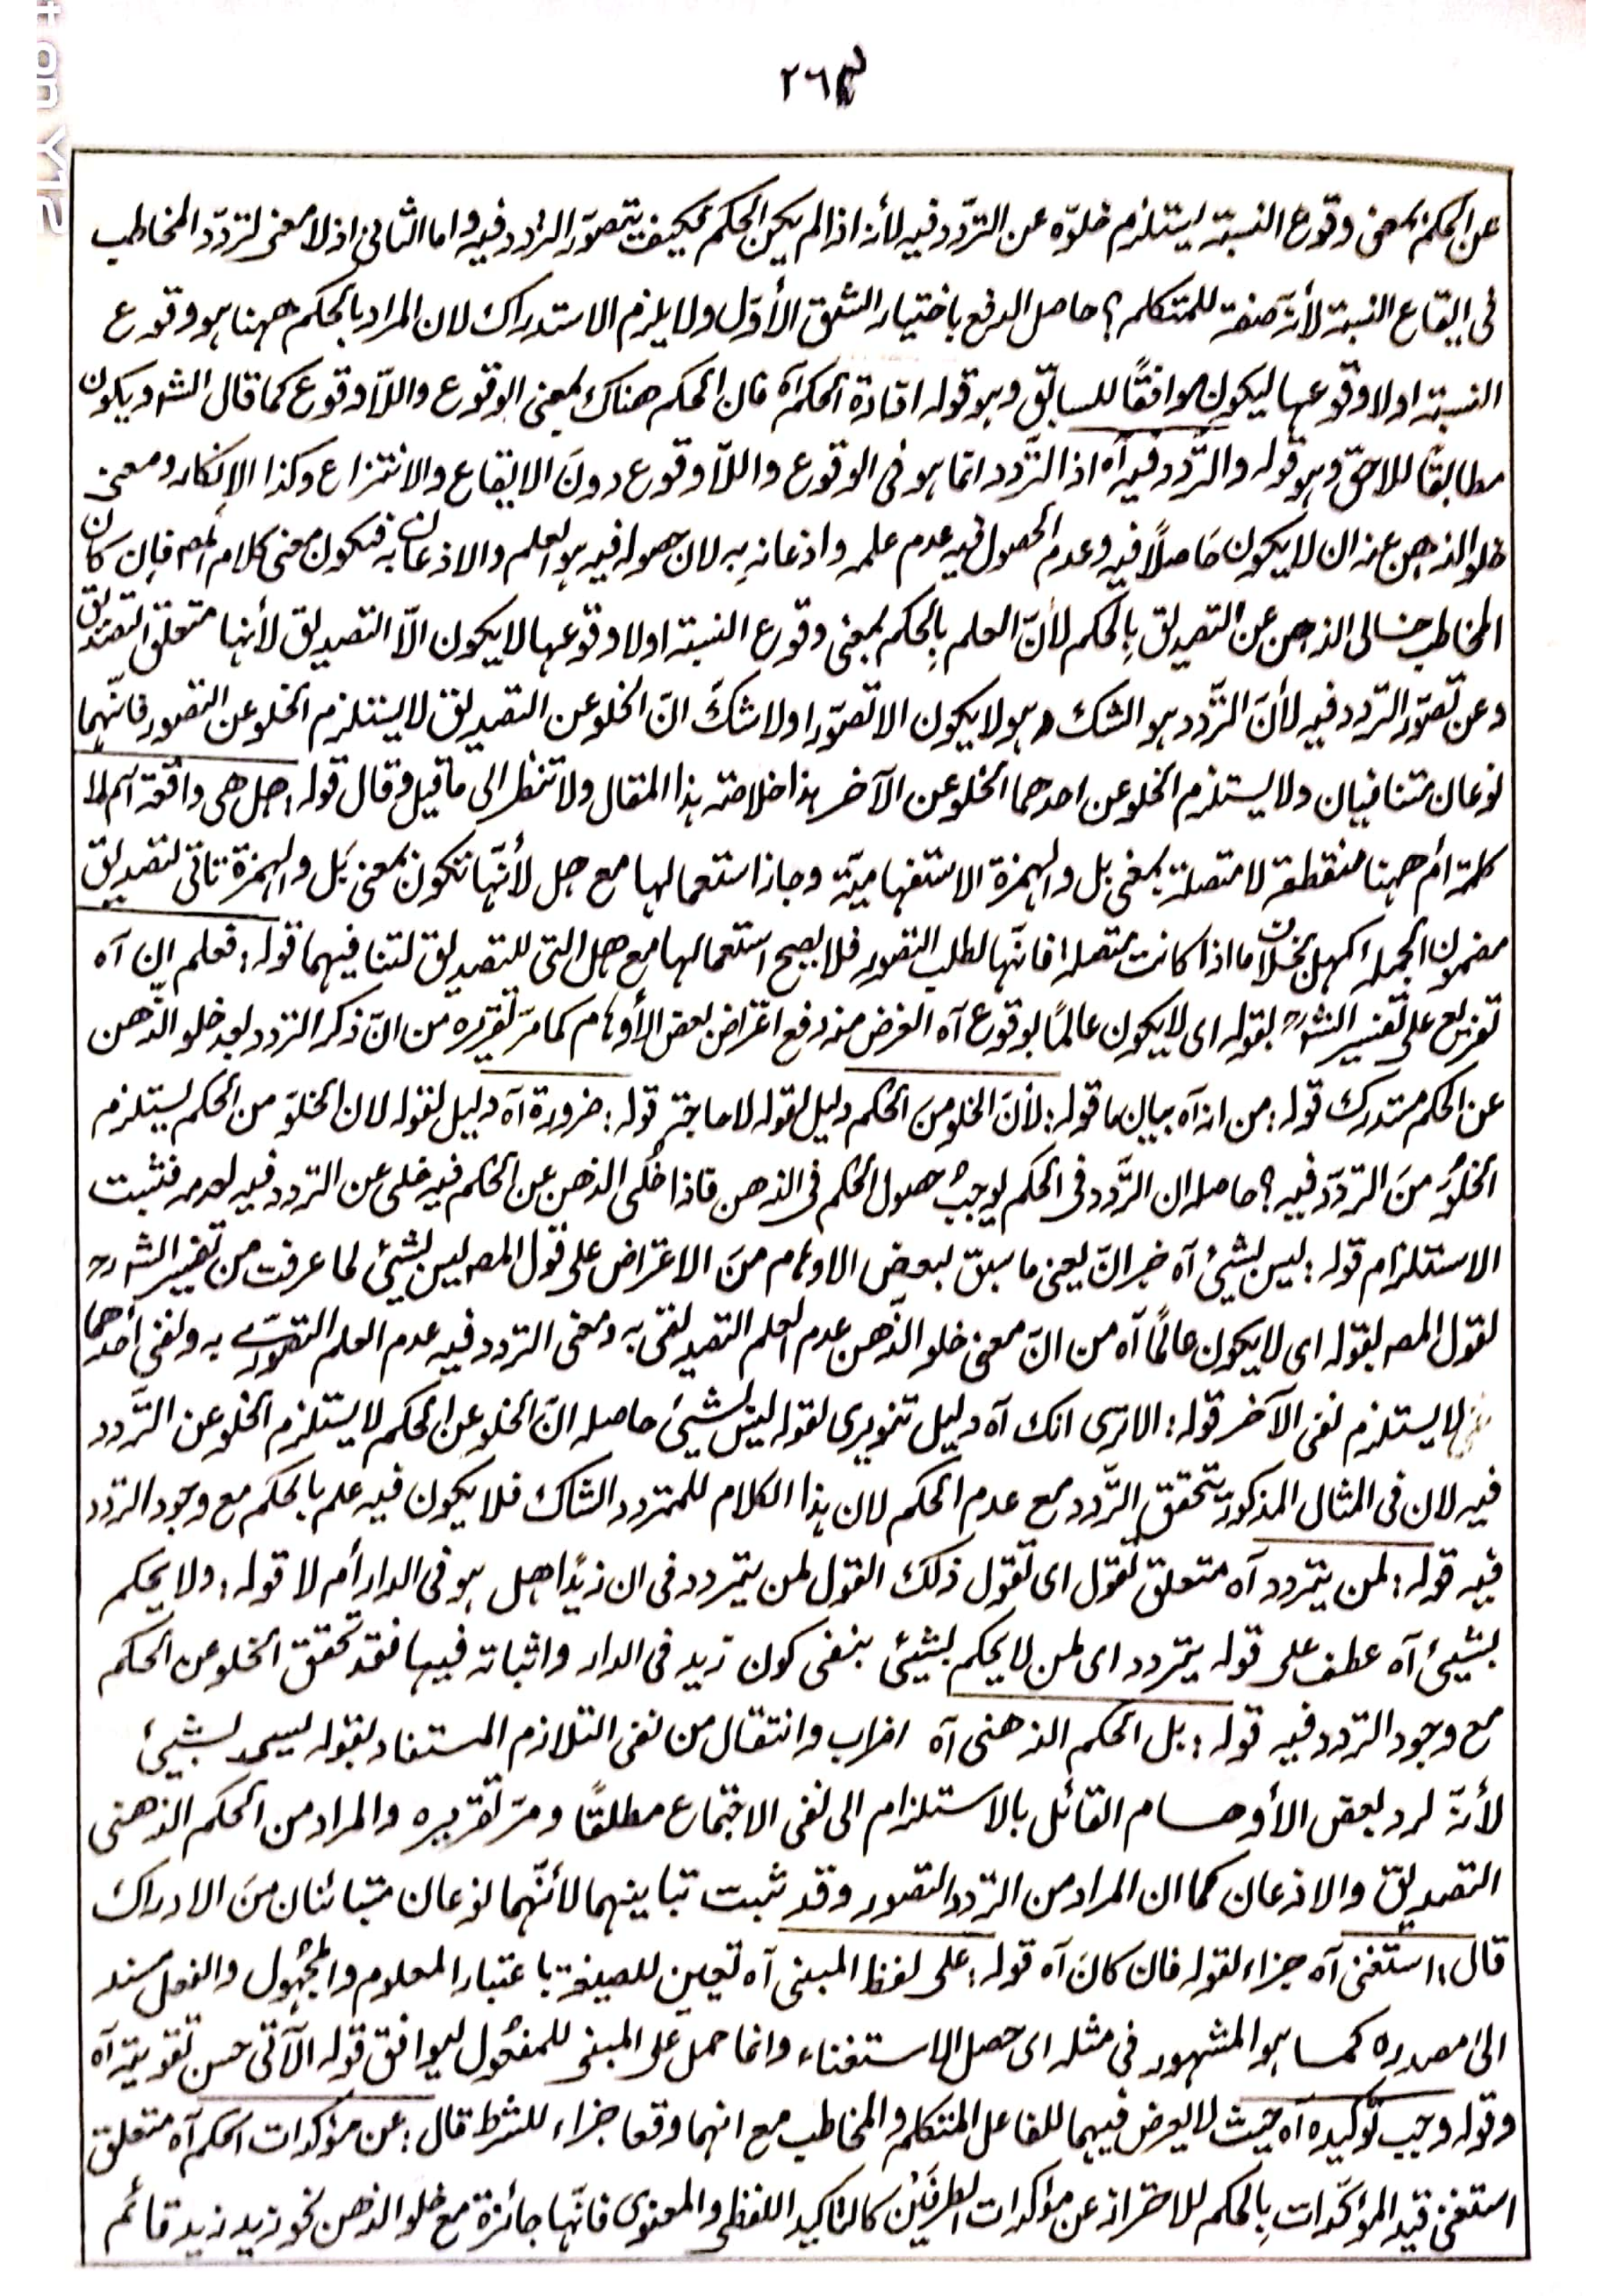 ٢٦٤
عن الحكم بمعنى وقوع النسبة يستلزم خلوّه عن التردّد فيه لأنه اذا لم يكن الحكم فكيف يتصوّر التردد فيه واما الثانى اذ لا معنى لتردّد المخاطب
فى ايقاع النسبة لأنّه صفة للمتكلم؟ حاصل الدفع باختيار الشق الأوّل ولا يلزم الاستدراك لان المراد بالحكم ههنا هو وقوع
النسبة او لا وقوعها ليكون موافقًا للسابق وهو قوله افادة الحكم آه فان الحكم هناك بمعنى الوقوع واللّا وقوع كما قال الشر ويكون
مطابقًا للاحق وهو قوله والتّردد فيه آه اذ التّردد انما هو فى الوقوع واللّا وقوع دونَ الايقاع والانتزاع وكذا الإنكار ومعنى
خلو الذهن عنه ان لا يكون حَاصلًا فيه وعدم الحصول فيه عدم علمه واذعانه به لان حصوله فيه هو العلم والاذعان به فتكون معنى كلام المص فإن كان
المخاطب خالى الذهن عن التصديق بِالحكم لأنّ العلم بِالحكم بمعنى وقوع النسبة او لا وقوعها لا يكون الّا التصديق لأنها متعلق التصديق
وعن تصوّر التردد فيه لأنَ التّردد هو الشك وهو لا يكون الا تصوّرا ولا شكَ انّ الخلو عن التصديق لا يستلزم الخلو عن التصور فانّهما
نوعان متنافيان ولا يستلزم الخلو عن احدهما الخلو عن الآخر هذا خلاصته هذا المقال ولا تنظر الى ما قيل وقال قوله: هل هى واقعة ام لا
كلمة أم ههنا منقطعة لا متصلة بمعنى بل والهمزة الاستفهاميّة وجاز استعمالها مع هل لأنّها تكون بمعنى بَل والهمزة تأتى لتصديق
مضمون الجملة كهل بخلاف ما اذا كانت متصلة فانّها لطلب التصور فلا يصح استعمالها مع هل التى للتصديق لتنافيهما قوله: فعلم ان آه
تفريع على تفسير الشر بقوله اى لا يكون عالمًا بوقوع آه الغرض منه دفع اعتراض بعض الأوهام كما مرّ تقريره من انّ ذكر التردد بعد خلو الذّهن
عن الحكم مستدرك قوله: من انه آه بيان ما قوله: لأنّ الخلو منَ الحكم دليل لقوله لا حاجة قوله: ضرورة آه دليل لقوله لان الخلوّ من الحكم يستلزم
الخلوُ منَ التردّد فيه؟ حاصله ان التّردد فى الحكم يوجبُ حصول الحكم فى الذهن فاذا خلى الذهن عن الحكم فيه خلى عن التردد فيه لعدمه فثبت
الاستلزام قوله: ليس بشيئ آه خبر انّ يعنى ما سبق لبعض الاوهام منَ الاعتراض على قول المص ليس بشيئ لما عرفت من تفسير الشر
لقول المص بقوله اى لا يكون عالمًا آه من انّ معنى خلو الذّهن عدم العلم التصديقى به ومعنى التردد فيه عدم العلم التصوّرى به ونفى أحدهما
لا يستلزم نفى الآخر قوله: الا ترى انك آه دليل تنويرى لقوله ليس بشيئ حاصله انّ الخلو عن الحكم لا يستلزم الخلو عن التّردد
فيه لان فى المثال المذكور يتحقق التّردد مع عدم الحكم لان هذا الكلام للمتردد الشاك فلا يكون فيه علم بالحكم مع وجود التردد
فيه قوله: لمن يتردد آه متعلق تقول اى تقول ذلك القول لمن يتردد فى ان زيدًا هل هو فى الدار أم لا قوله: ولا يحكم
بشيئ آه عطف على قوله يتردد اى لمن لا يحكم بشيئ بنفى كون زيد فى الدار واثباته فيها فقد تحقق الخلو عن الحكم
مع وجود التردد فيه قوله: بل الحكم الذهنى آه اضراب وانتقال من نفى التلازم المستفاد بقوله ليس بشيئ
لأنّه لرد بعض الأوهام القائل بالاستلزام الى نفى الاجتماع مطلقًا ومرّ تقريره والمراد من الحكم الذهنى
التصديق والاذعان كما ان المراد من التردد التصور وقد ثبت تباينهما لأنّهما نوعان متبائنان منَ الادراك
قال: استغنى آه جزاء لقوله فان كانَ آه قوله: على لفظ المبنى آه تعيين للصيغة باعتبار المعلوم والمجُهول والفعل مسند
الىٰ مصدره كما هو المشهور فى مثله اى حصل الاستغناء وانما حمل على المبنى للمفعُول ليوافق قوله الآتى حسن تقويته آه
وقوله وجب تُوكيده آه حيث لا يعرض فيهما للفاعل المتكلم والمخاطب مع انهما وقعا جزاء للشرط قال: عن مؤكدات الحكم آه متعلق
استغنى قيد المؤكّدات بِالحكم للاحتراز عن مؤكدات الطرفَيْن كالتاكيد اللفظى والمعنوى فانّها جائزة مع خلو الذهن نحو زيد زيد قائم